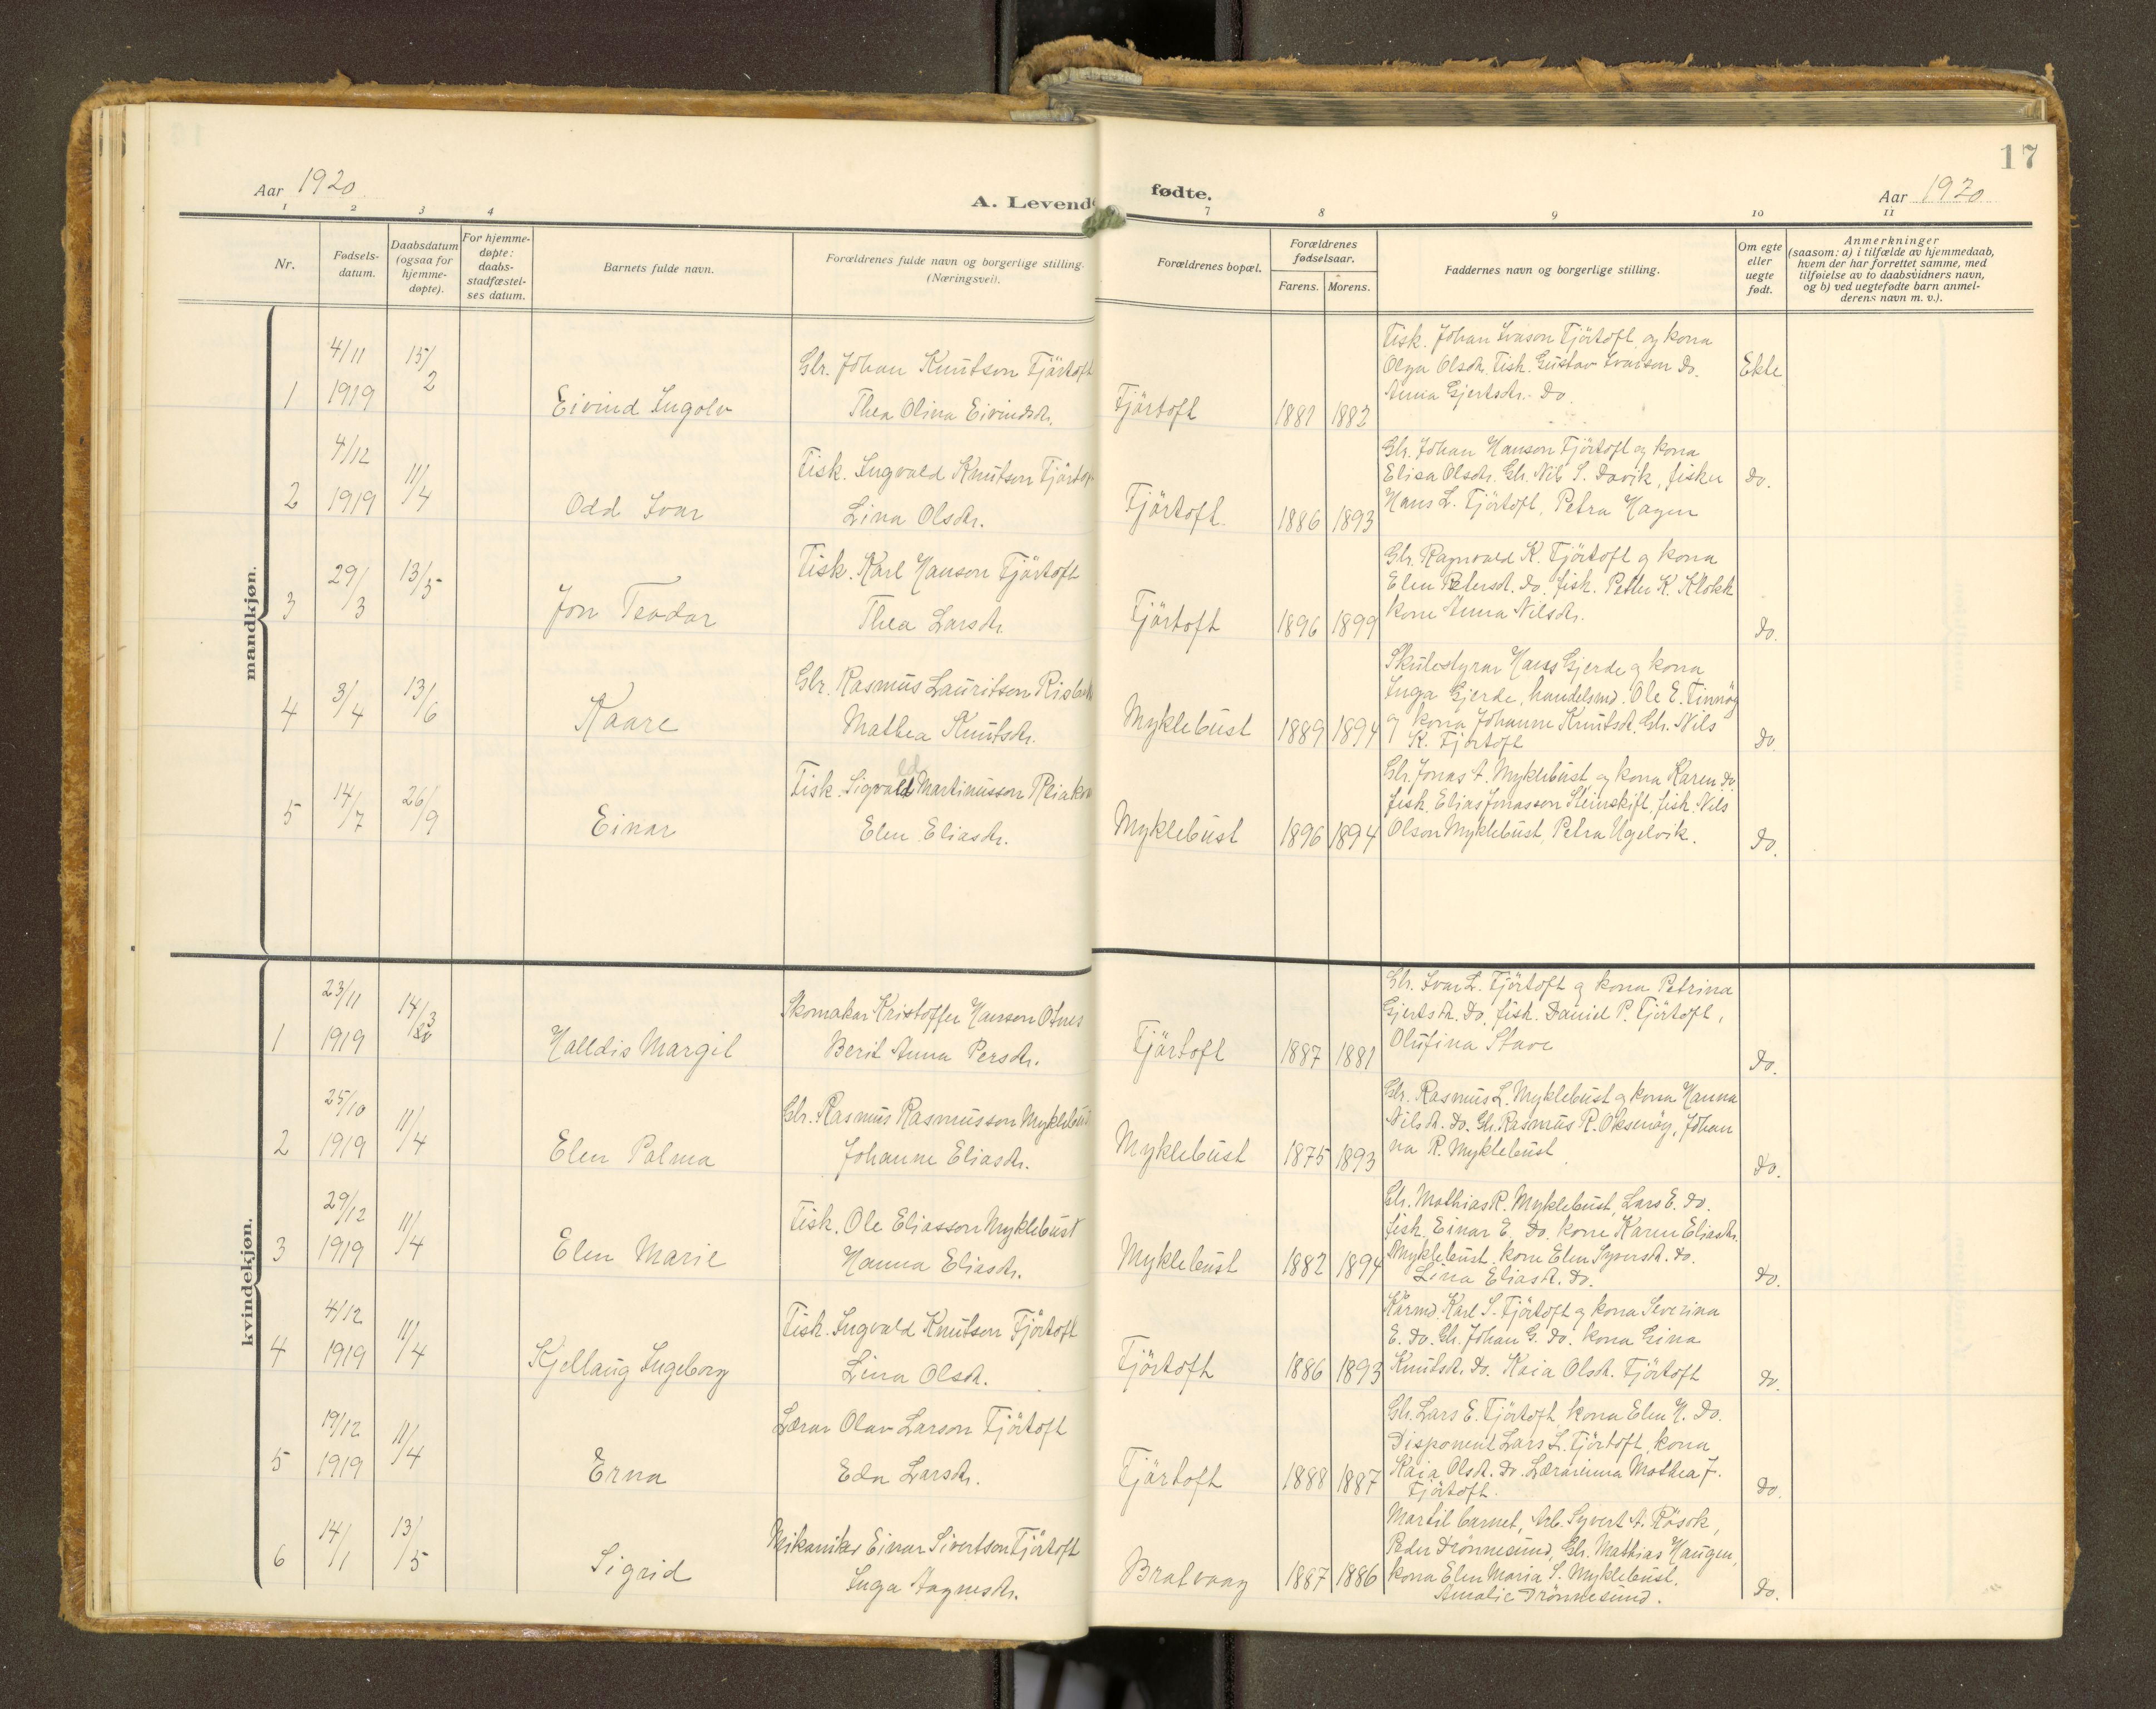 17
Aar 1920
A. Levende
fødte.
Aar 1920
1 2 3 4 7 8 9 10 11
Nr.
Fødsels-
datum.
Daabsdatum
(ogsaa for
hjemme-
døpte).
For hjemme-
døpte:
daabs-
stadfæstel-
ses datum.
Barnets fulde navn.
Forældrenes fulde navn og borgerlige stilling.
(Næringsvei).
Forældrenes bopæl.
Forældrenes
fødselsaar.
Farens. Morens.
Faddernes navn og borgerlige stilling.
Om egte
eller
uegte
født.
Anmerkninger
(saasom: a) i tilfælde av hjemmedaab,
hvem der har forrettet samme, med
tilføielse av to daabsvidners navn,
og b) ved uegtefødte barn anmel-
derens navn m. v.).
mandkjøn.
1
4/11
1919
15/2
Eivind Ingolv
Gbr. Johan Knutson Fjörtoft
Thea Olina Eivindsdr.
Fjörtoft
1881 1882
Fisk. Johan Ivarson Fjörtoft og kona
Olga Olsdr. Fisk. Gustav Ivarson Do.
Anna Gjertsdr. Do.
Ekte
2
4/12
1919
11/4
Odd Ivar
Fisk. Ingvald Knutson Fjörtof
Lina Olsdr.
Fjörtoft.
1886 1893
Gbr. Johan Hanson Fjörtoft og kona
Elisa Olsdr. Gbr. Nils S. Davik, fisker
Hans L. Fjörtoft, Petra Hagen
Do.
3
29/3
13/5
Jon Teodor
Fisk. Karl Hanson Fjörtoft
Thea Larsdr.
Fjörtoft
1896 1899
Gbr. Ragnvald K. Fjörtoft og kona
Elen Petersdt. Do. fisk. Petter K. Klokk
kone Anna Nilsdr.
Do.
4
3/4
13/6
Kaare
Gbr. Rasmus Lauritson
Mathea Knutsdr.
Myklebust
1889 1894
Skulestyrar Hans Gjerde og kona
Inga Gjerde, handelsmd. Ole E. Finnöy
og kona Johanne Knutsdt. Gbr. Nils
K. Fjörtoft
Do
5
14/7
26/9
Einar
ld
Fisk. Sigvald Martinusson
Elen Eliasdr.
Myklebust
1896 1894
Gbr. Jonas A. Myklebust og kona Karen Do.
fisk. Elias Jonasson Steinskift, fisk. Nils
Olson Myklebust, Petra Ugelvik.
Do.
kvindekjøn.
1
23/11
1919
14/3
Halldis Margit
Skomakar Kristoffer Hanson Otnes
Berit Anna Persdr.
Fjörtoft
1887 1881
Gbr. Ivar L. Fjörtoft og kona Petrina
Gjertsdt. Do. fisk. Daniel P. Fjörtoft,
Olufina Stave
Do.
2
25/10
1919
11/4
Elen Palma
Gbr. Rasmus Rasmusson Myklebust
Johanne Eliasdr.
Myklebust
1875 1893
Gbr. Rasmus L. Myklebust og kona Hanna
Nilsdt. Do. Gbr. Rasmus R. Oksenöy, Johan
na R. Myklebust
Do.
3
29/12
1919
11/4
Elen Marie
Fisk. Ole Eliasson Myklebust
Hanna Eliasdr.
Myklebust
1882 1894
Gbr. Mathias R. Myklebust, Lars E. Do.
fisk. Einar E. Do. kone Karen Eliasdr.
Myklebust. kone Elen Syversdt. Do.
Lina Eliasdt. Do.
Do.
4
4/12
1919
11/4
Kjellaug Ingeborg
Fisk. Ingvald Knutson Fjörtoft
Lina Olsdt.
Fjörtoft
1886 1893
Kårmd. Karl S. Fjörtoft og kona Severina
E. Do. Gbr. Johan G. Do. kona Gina
Knutsdt. Do. Kaia Olsdt. Fjörtoft
Do.
5
19/12
1919
11/4
Erna
Lærar Olav Larson Fjörtoft
Eda Larsdr.
Fjörtoft
1888 1887
Gbr. Lars E. Fjörtoft, kona Elen H. Do.
Disponent Lars L. Fjörtoft, kona
Kaia Olsdt. Do. Lærarinna Mathea J.
Fjörtoft.
Do.
6
14/1
13/5
Sigrid
Mekaniker Einar Sivertson Fjörtoft
Inga Hagnesdr.
Bratvaag
1887 1886
Martil barnet, Arb. Syvert A. Rösok,
Peder Drönnesund, Gbr. Mathias Haugen,
kona Elen Maria S. Myklebust.
Amalie Drönnesund.
Do.